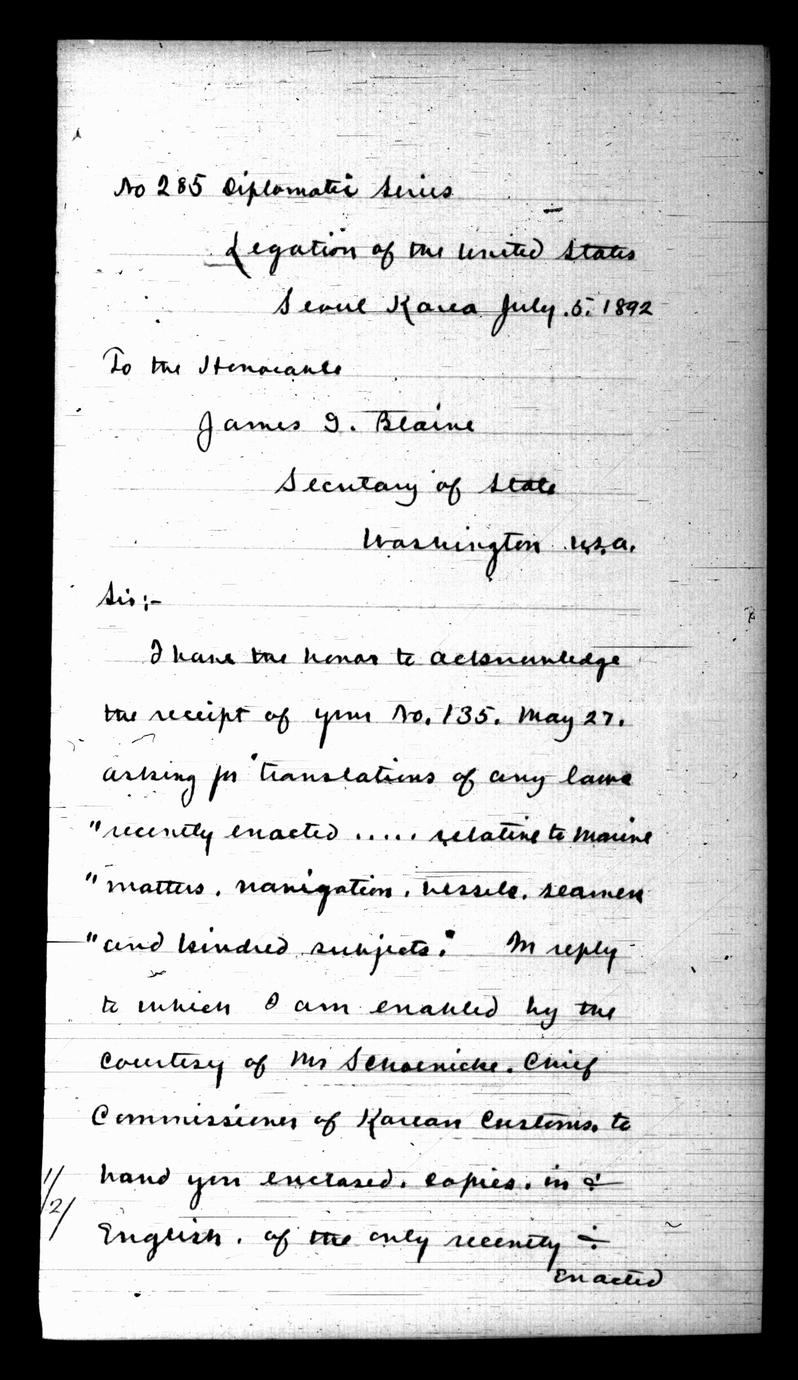 No 285 Diplomatic Series
Legation of the United States
Seoul Korea July. 5. 1892
To the Honorable
James G. Blaine
Secretary of State
Washington U.S.A.
Sir:-
I have the honor to acknowledge
the receipt of your No. 135. May 27.
asking for "translations of any laws
"recently enacted ..... relative to marine
"matters, navigation, vessels, seamen
"and kindred subjects." In reply
to which I am enabled by the
courtesy of Mr Schoenicke. Chief
Commissioner of Korean Customs. to
hand you enclosed. copies. in
1/
2/
English. of the only recently
Enacted